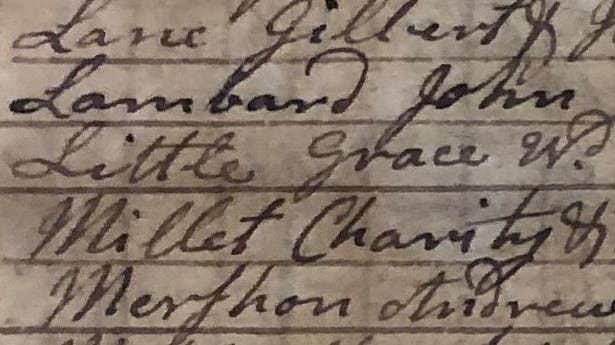 Lane Gilbert &
Lambard John
Little Grace Wd.
Millet Charity &
Merſhon Andrew